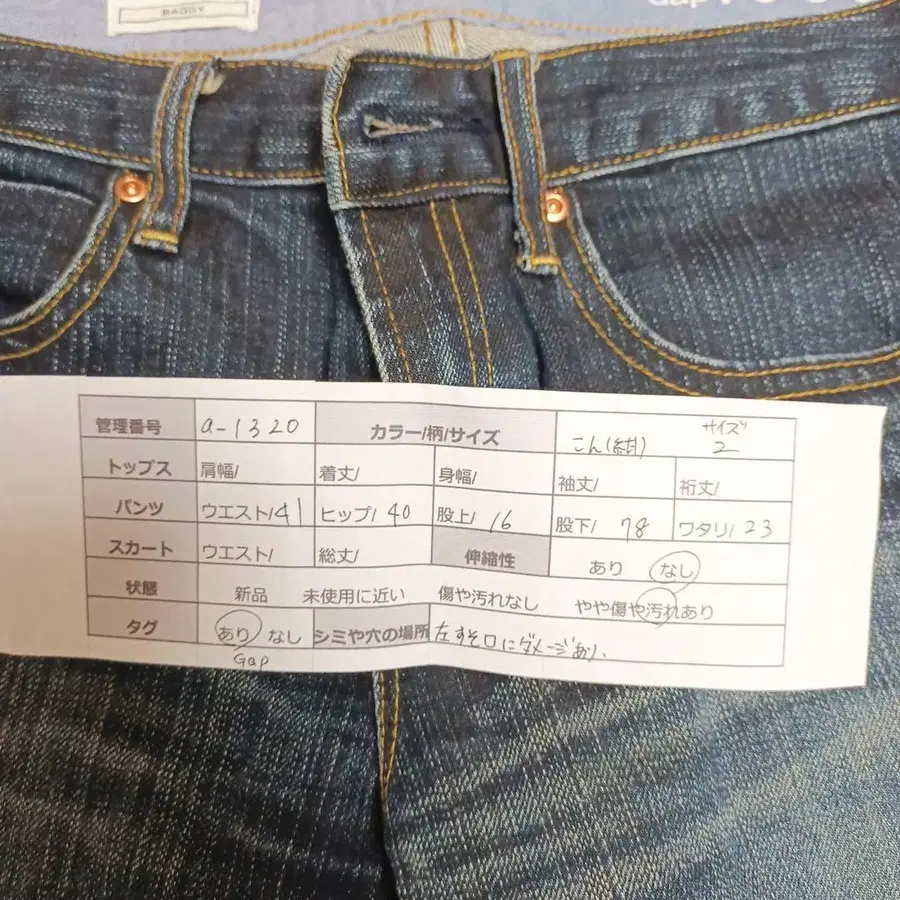 BAGGY
Gap
管理番号 a-1320 カラー/柄/サイズ こん(紺) サイズ 2
トップス 肩幅/ 着丈/ 身幅/ 袖丈/ 裄丈/
パンツ ウエスト/41 ヒップ/40 股上/16 股下/78 ワタリ/23
スカート ウエスト/ 総丈/ 伸縮性 あり なし
状態 新品 未使用に近い 傷や汚れなし やや傷や汚れあり
タグ あり なし シミや穴の場所 左すそ口にダメージあり.
Gap